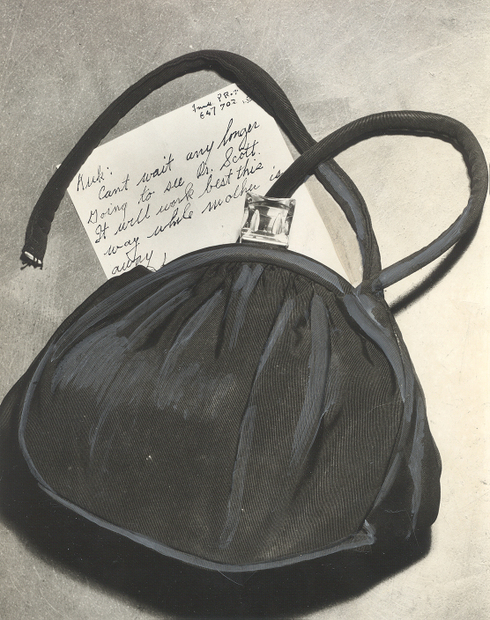 P.R.
647 702
Kirk:
Cant wait any longer
Going to see Dr. Scott.
It will work best this
way while mother is
away,